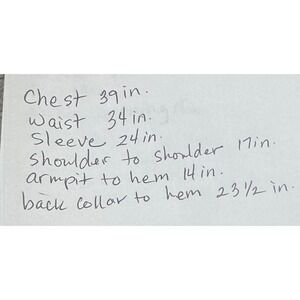 Chest 39in.
Waist 34in.
Sleeve 24in.
Shoulder to shoulder 17in.
armpit to hem 14in.
back collar to hem 23 1/2 in.